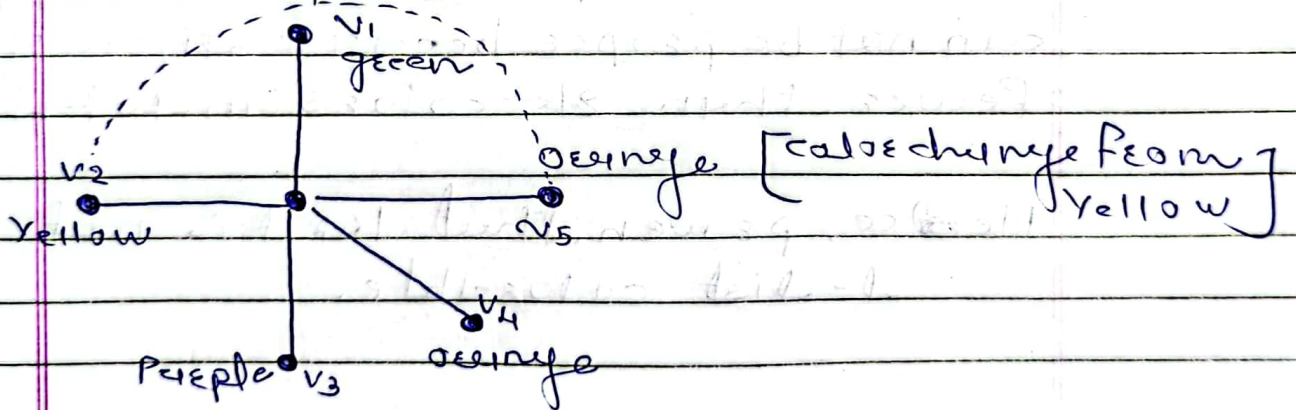 V1
green
V2
orange [color change from
Yellow]
Yellow
V5
V4
orange
Purple V3